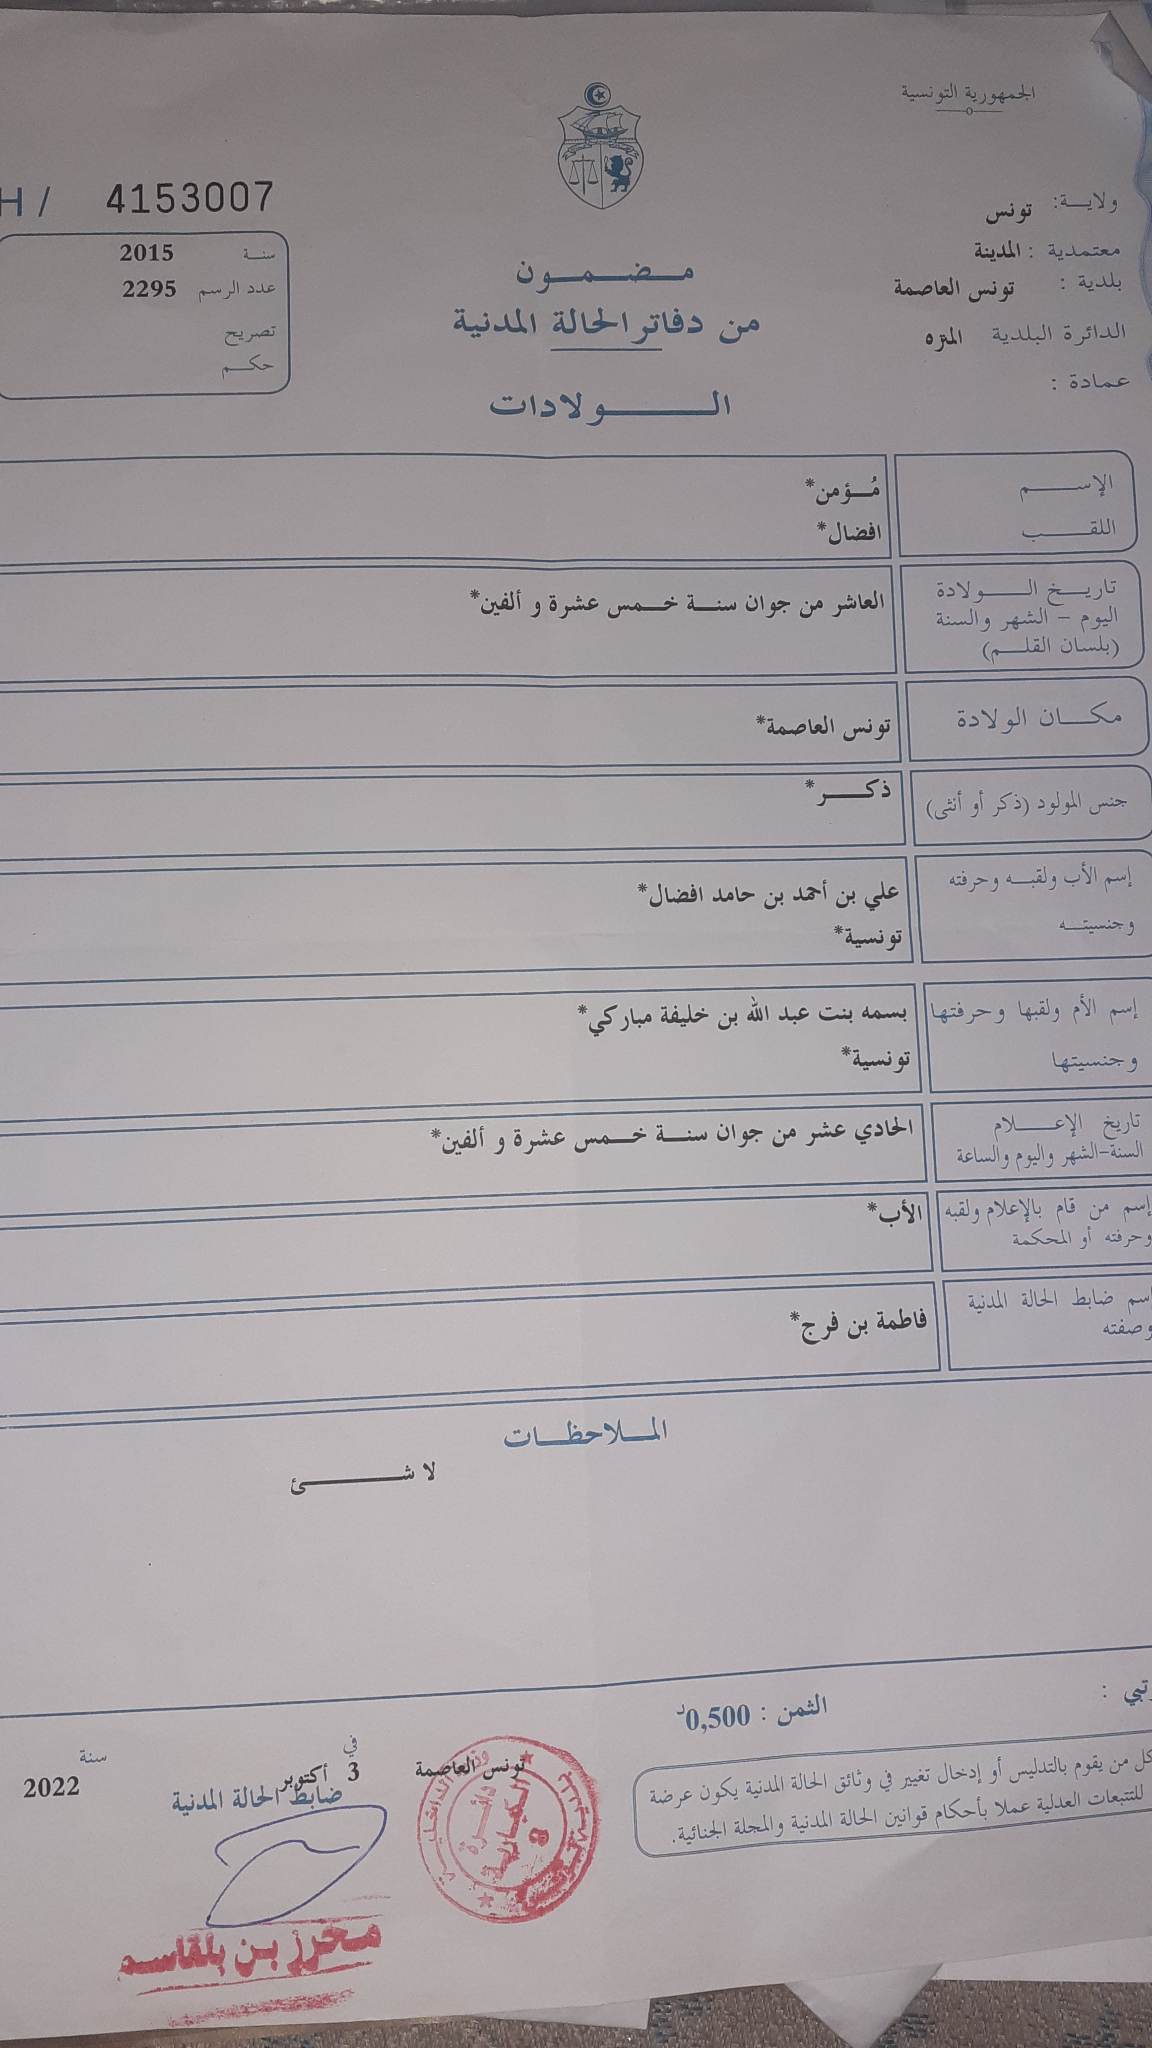 الجمهورية التونسية
ولاية: تونس
معتمدية : المدينة
بلدية : تونس العاصمة
الدائرة البلدية المنزه
عمادة :
H / 4153007
سنة 2015
عدد الرسم 2295
تصريح
حكم
مضمون
من دفاتر الحالة المدنية
الولادات
الإسم مُؤمن*
اللقب افضال*
تاريخ الولادة
اليوم - الشهر والسنة
(بلسان القلم)
العاشر من جوان سنة خمس عشرة و ألفين*
مكان الولادة تونس العاصمة*
جنس المولود (ذكر أو أنثى) ذكر*
إسم الأب ولقبه وحرفته علي بن أحمد بن حامد افضال*
وجنسيته تونسية*
إسم الأم ولقبها وحرفتها بسمه بنت عبد الله بن خليفة مباركي*
وجنسيتها تونسية*
تاريخ الإعلام
السنة-الشهر واليوم والساعة
الحادي عشر من جوان سنة خمس عشرة و ألفين*
إسم من قام بالإعلام ولقبه
وحرفته أو المحكمة
الأب*
إسم ضابط الحالة المدنية
وصفته
فاطمة بن فرج*
الملاحظات
لا شئ
الثمن : 0,500د
كل من يقوم بالتدليس أو إدخال تغيير في وثائق الحالة المدنية يكون عرضة
للتتبعات العدلية عملا بأحكام قوانين الحالة المدنية والمجلة الجنائية.
تونس العاصمة في 3 أكتوبر سنة 2022
ضابط الحالة المدنية
دائرة
8
محرز بن بلقاسم